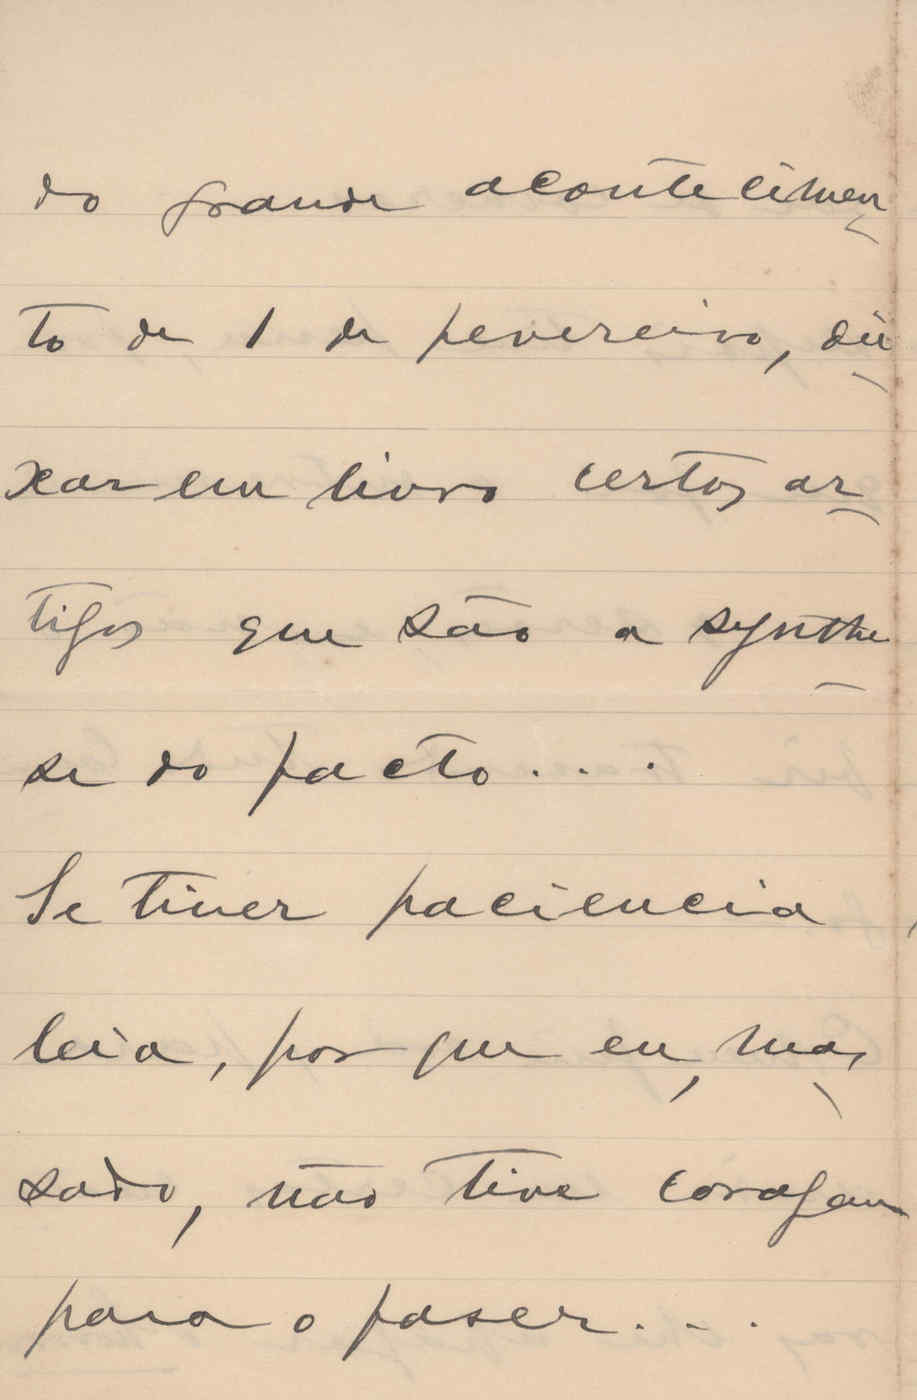 do grande acontecimen
to de 1 de fevereiro, dei
xar em livro certos ar
tigos que são a synthe
se do facto....
Se tiver paciencia,
leia, por que eu, mas
sado, não tive coragem
para o faser...